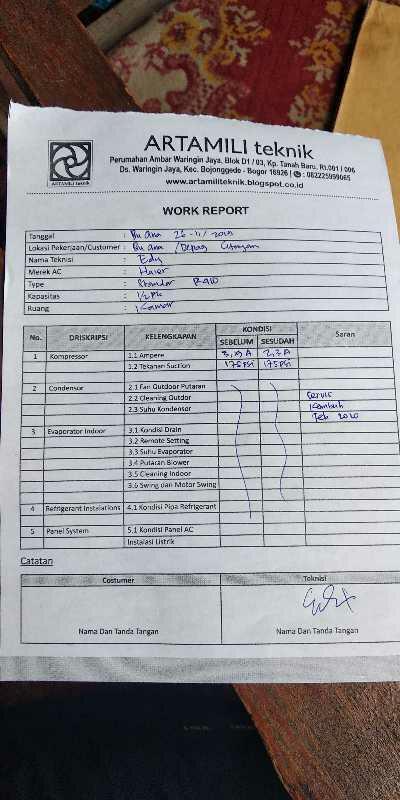 ARTAMILI teknik
ARTAMILI teknik
Perumahan Ambar Waringin Jaya, Blok D1 / 03, Kp. Tanah Baru, Rt.001 / 006
Ds. Waringin Jaya, Kec. Bojonggede - Bogor 16926 | : 082225999065
www.artamiliteknik.blogspot.co.id
WORK REPORT
Tanggal : Bu Ana 26-11/2019
Lokasi Pekerjaan/Customer : Bu Ana / Depag Citayam
Nama Teknisi : Edy
Merek AC : Haier
Type : Standar R410
Kapasitas : 1/2 PK
Ruang : Kamar
No. DRISKRIPSI KELENGKAPAN KONDISI Saran
SEBELUM SESUDAH
1 Kompressor 1.1 Ampere 2,3 A
1.2 Tekanan Suction 175 PSI 175 PSI
2 Condensor 2.1 Fan Outdoor Putaran
2.2 Cleaning Outdor Servis
2.3 Suhu Kondensor Kembali
Feb 2020
3 Evaporator Indoor 3.1 Kondisi Drain
3.2 Remote Setting
3.3 Suhu Evaporator
3.4 Putaran Blower
3.5 Cleaning Indoor
3.6 Swing dan Motor Swing
4 Refrigerant Instalations 4.1 Kondisi Pipa Refrigerant
5 Panel System 5.1 Kondisi Panel AC
Instalasi Listrik
Catatan
Costumer Teknisi
Nama Dan Tanda Tangan Nama Dan Tanda Tangan